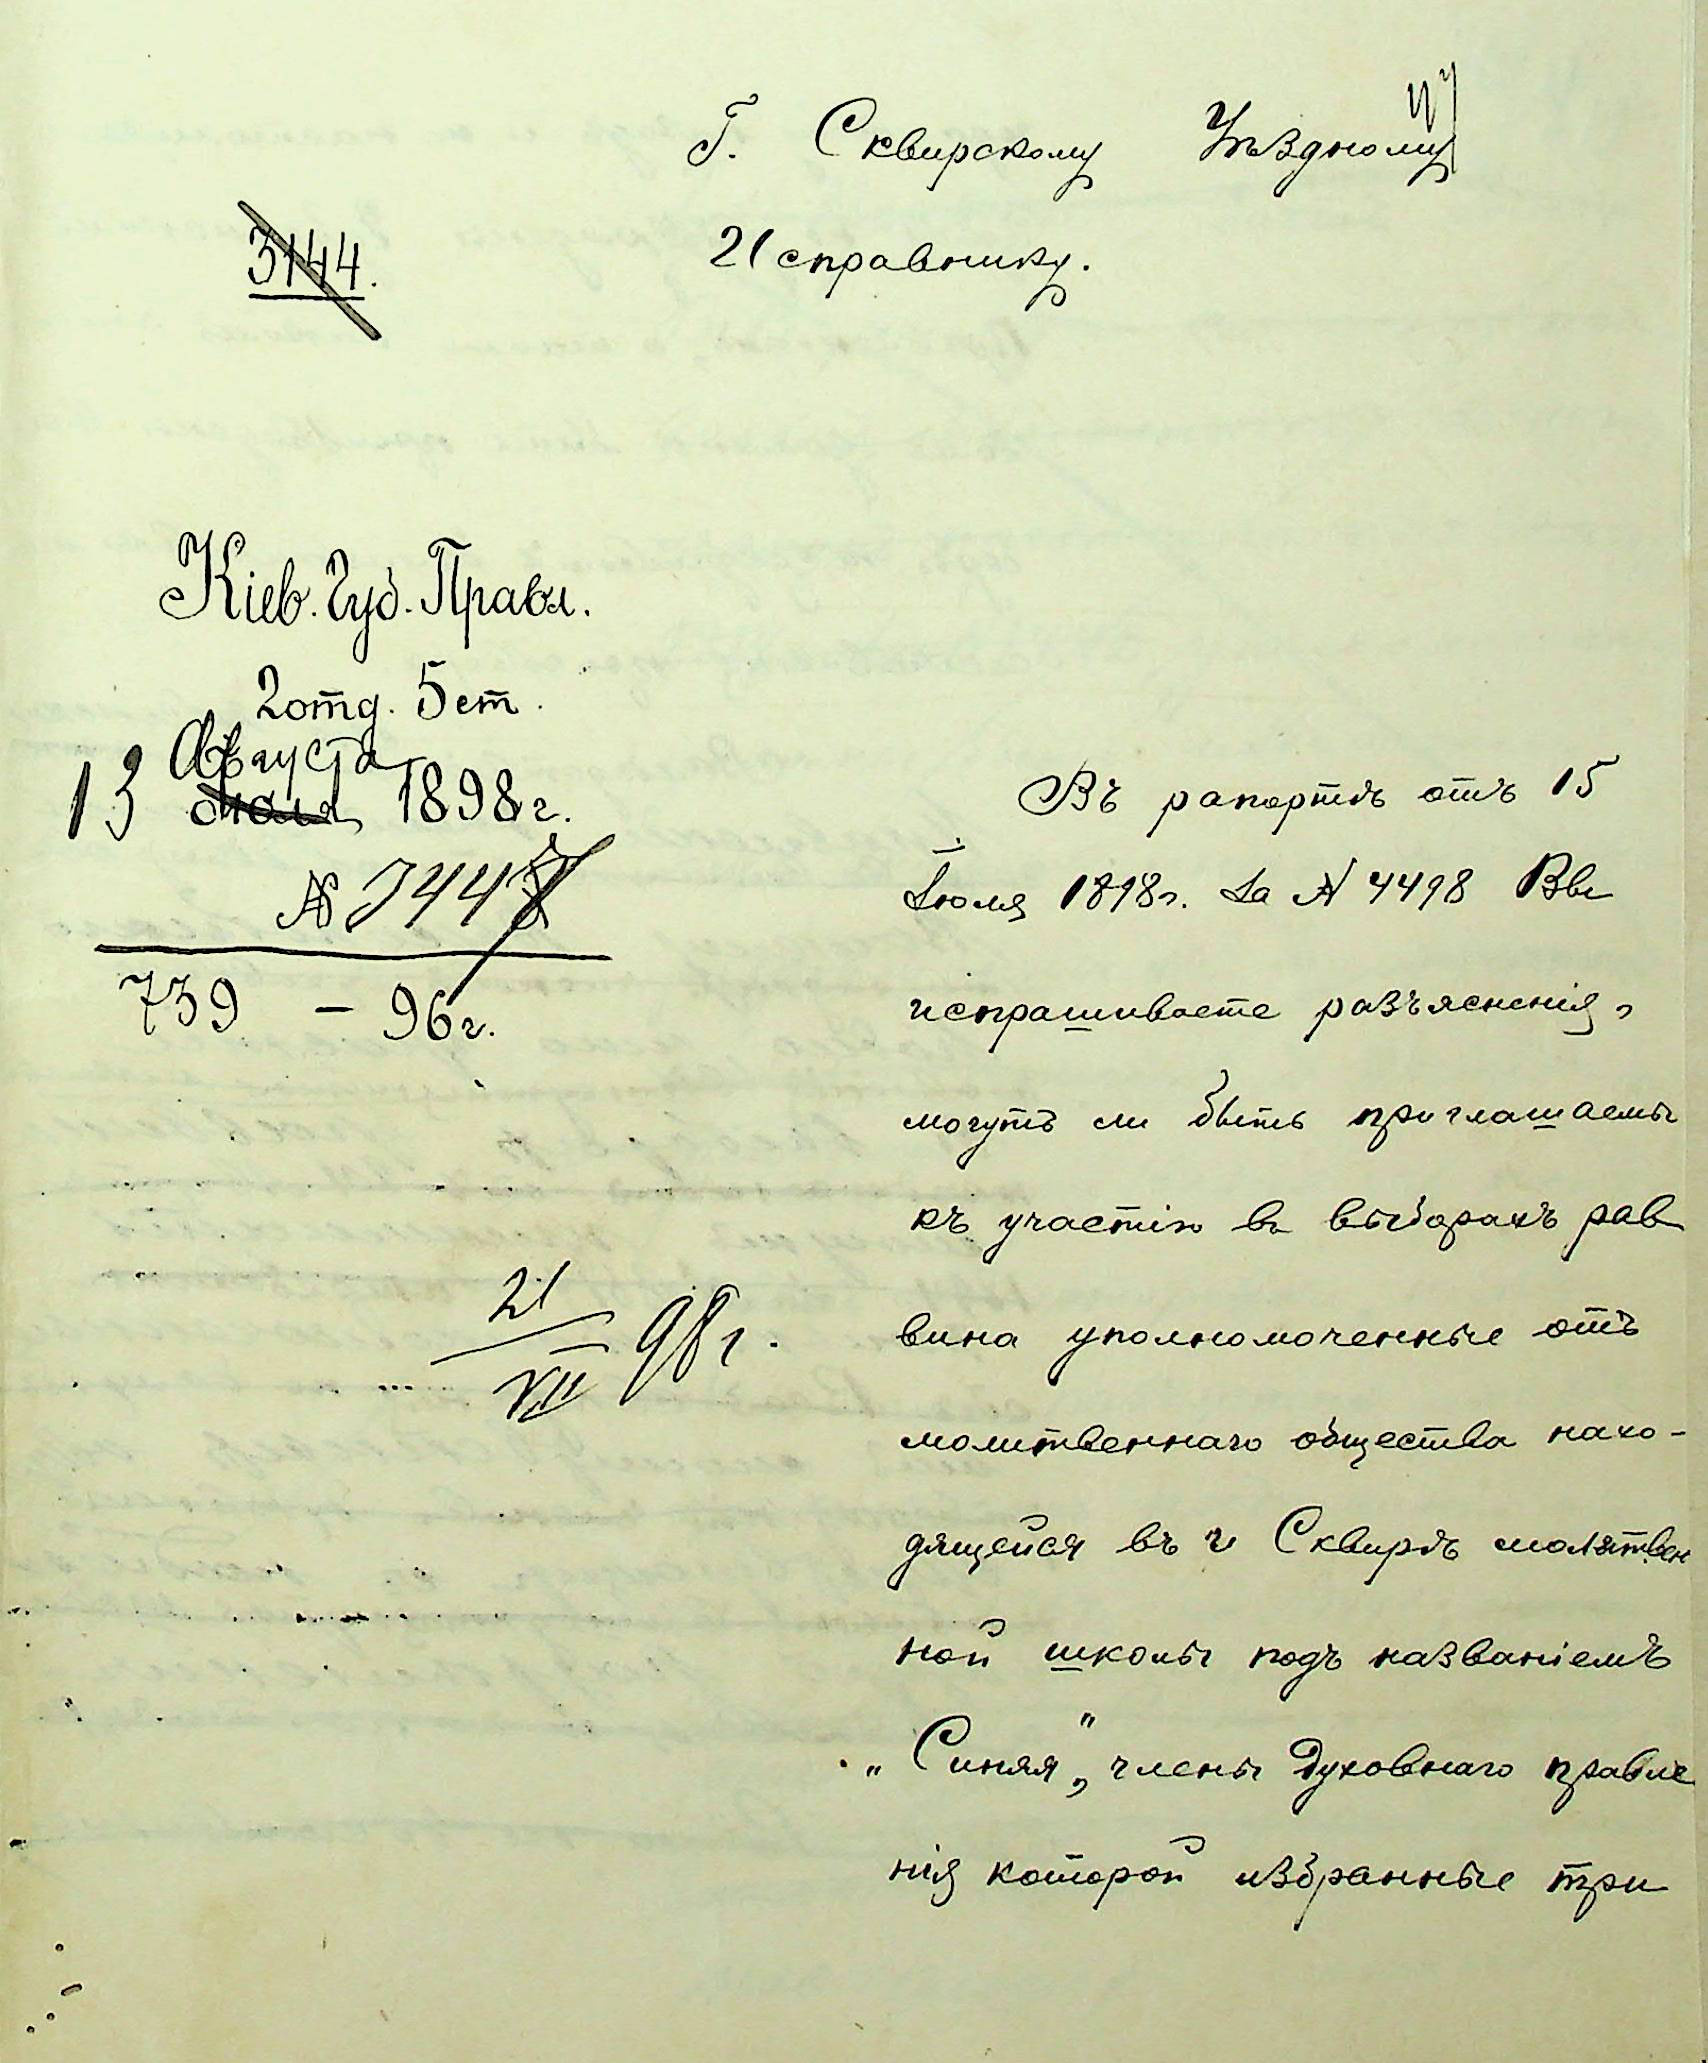 Г. Сквирскому Уѣздному
Исправнику.
3144.
Кіев. Губ. Правл.
2 отд. 5 ст.
Августа
13 Іюля 1898 г.
№ 3447
739 – 96 г.
21/VII 98 г.
Въ рапортѣ отъ 15
Іюля 1898 г. за № 4498 Вы
испрашиваете разъясненія,
могутъ ли быть приглашаемы
къ участію въ выборахъ рав
вина уполномоченные отъ
молитвеннаго общества нахо-
дящейся въ г Сквирѣ молитвен
ной школы подъ названіемъ
„Синяя", члены Духовнаго правле
нія которой избранные три